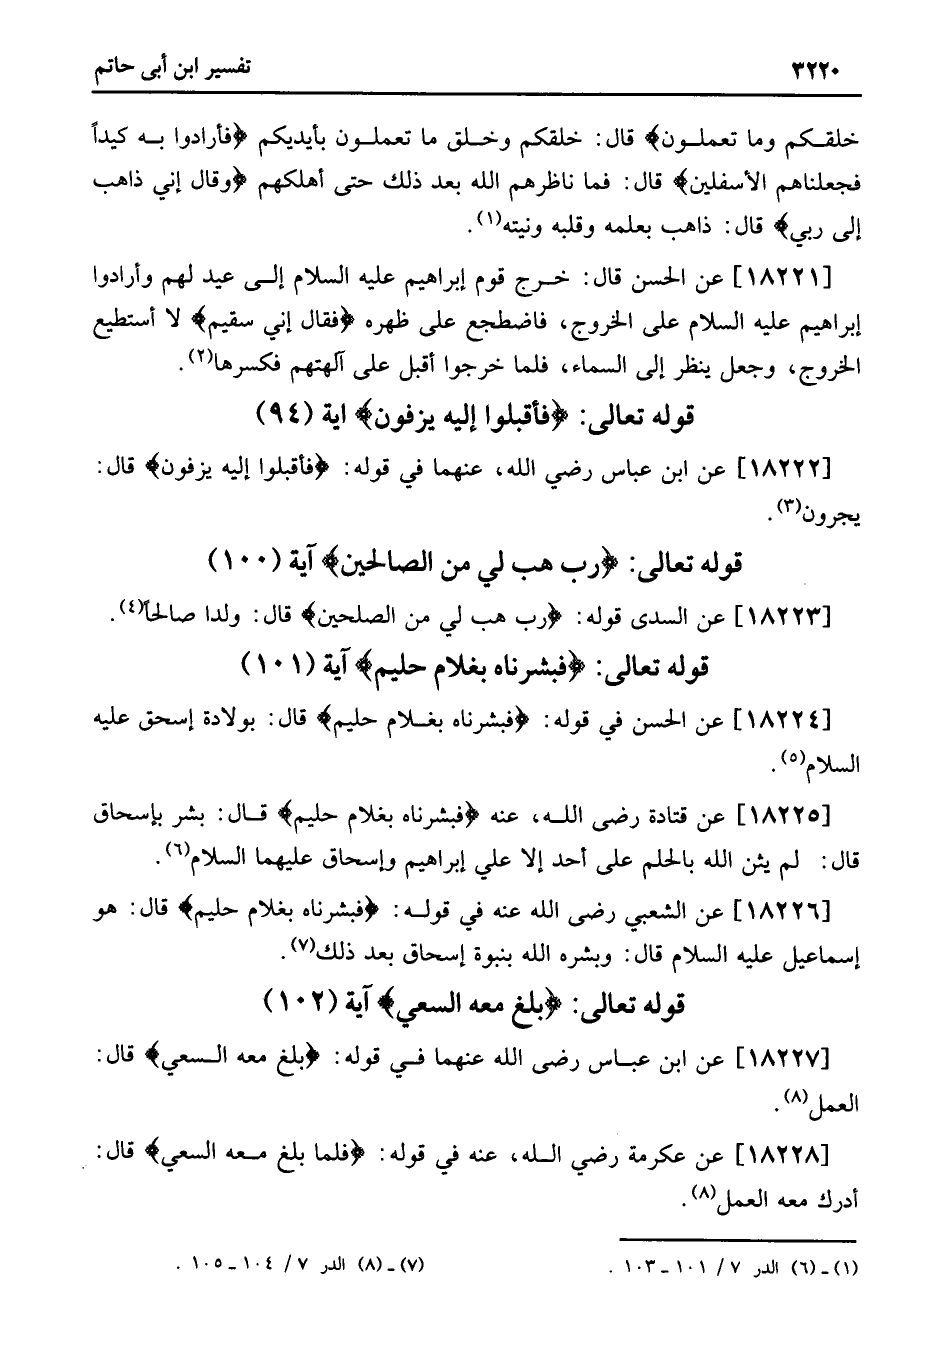 ٣٢٢٠
تفسير ابن أبى حاتم
خلقكم وما تعملون﴾ قال: خلقكم وخلق ما تعملون بأيديكم ﴿فأرادوا به كيداً
فجعلناهم الأسفلين﴾ قال: فما ناظرهم الله بعد ذلك حتى أهلكهم ﴿وقال إني ذاهب
إلى ربي﴾ قال: ذاهب بعلمه وقلبه ونيته(١).
[١٨٢٢١] عن الحسن قال: خرج قوم إبراهيم عليه السلام إلى عيد لهم وأرادوا
إبراهيم عليه السلام على الخروج، فاضطجع على ظهره ﴿فقال إني سقيم﴾ لا أستطيع
الخروج، وجعل ينظر إلى السماء، فلما خرجوا أقبل على آلهتهم فكسرها(٢).
قوله تعالى: ﴿فأقبلوا إليه يزفون﴾ اية (٩٤)
[١٨٢٢٢] عن ابن عباس رضي الله، عنهما في قوله: ﴿فأقبلوا إليه يزفون﴾ قال:
يجرون(٣).
قوله تعالى: ﴿رب هب لي من الصالحين﴾ آية (١٠٠)
[١٨٢٢٣] عن السدى قوله: ﴿رب هب لي من الصلحين﴾ قال: ولدا صالحاً(٤).
قوله تعالى: ﴿فبشرناه بغلام حليم﴾ آية (١٠١)
[١٨٢٢٤] عن الحسن في قوله: ﴿فبشرناه بغلام حليم﴾ قال: بولادة إسحق عليه
السلام(٥).
[١٨٢٢٥] عن قتادة رضى الله، عنه ﴿فبشرناه بغلام حليم﴾ قال: بشر بإسحاق
قال: لم يثن الله بالحلم على أحد إلا علي إبراهيم وإسحاق عليهما السلام(٦).
[١٨٢٢٦] عن الشعبي رضى الله عنه في قوله: ﴿فبشرناه بغلام حليم﴾ قال: هو
إسماعيل عليه السلام قال: وبشره الله بنبوة إسحاق بعد ذلك(٧).
قوله تعالى: ﴿بلغ معه السعي﴾ آية (١٠٢)
[١٨٢٢٧] عن ابن عباس رضى الله عنهما في قوله: ﴿بلغ معه السعي﴾ قال:
العمل(٨).
[١٨٢٢٨] عن عكرمة رضي الله، عنه في قوله: ﴿فلما بلغ معه السعي﴾ قال:
أدرك معه العمل(٨).
(١)ـ(٦) الدر ٧/ ١٠١ ـ ١٠٣ .
(٧)ـ(٨) الدر ٧/ ١٠٤ ـ ١٠٥ .